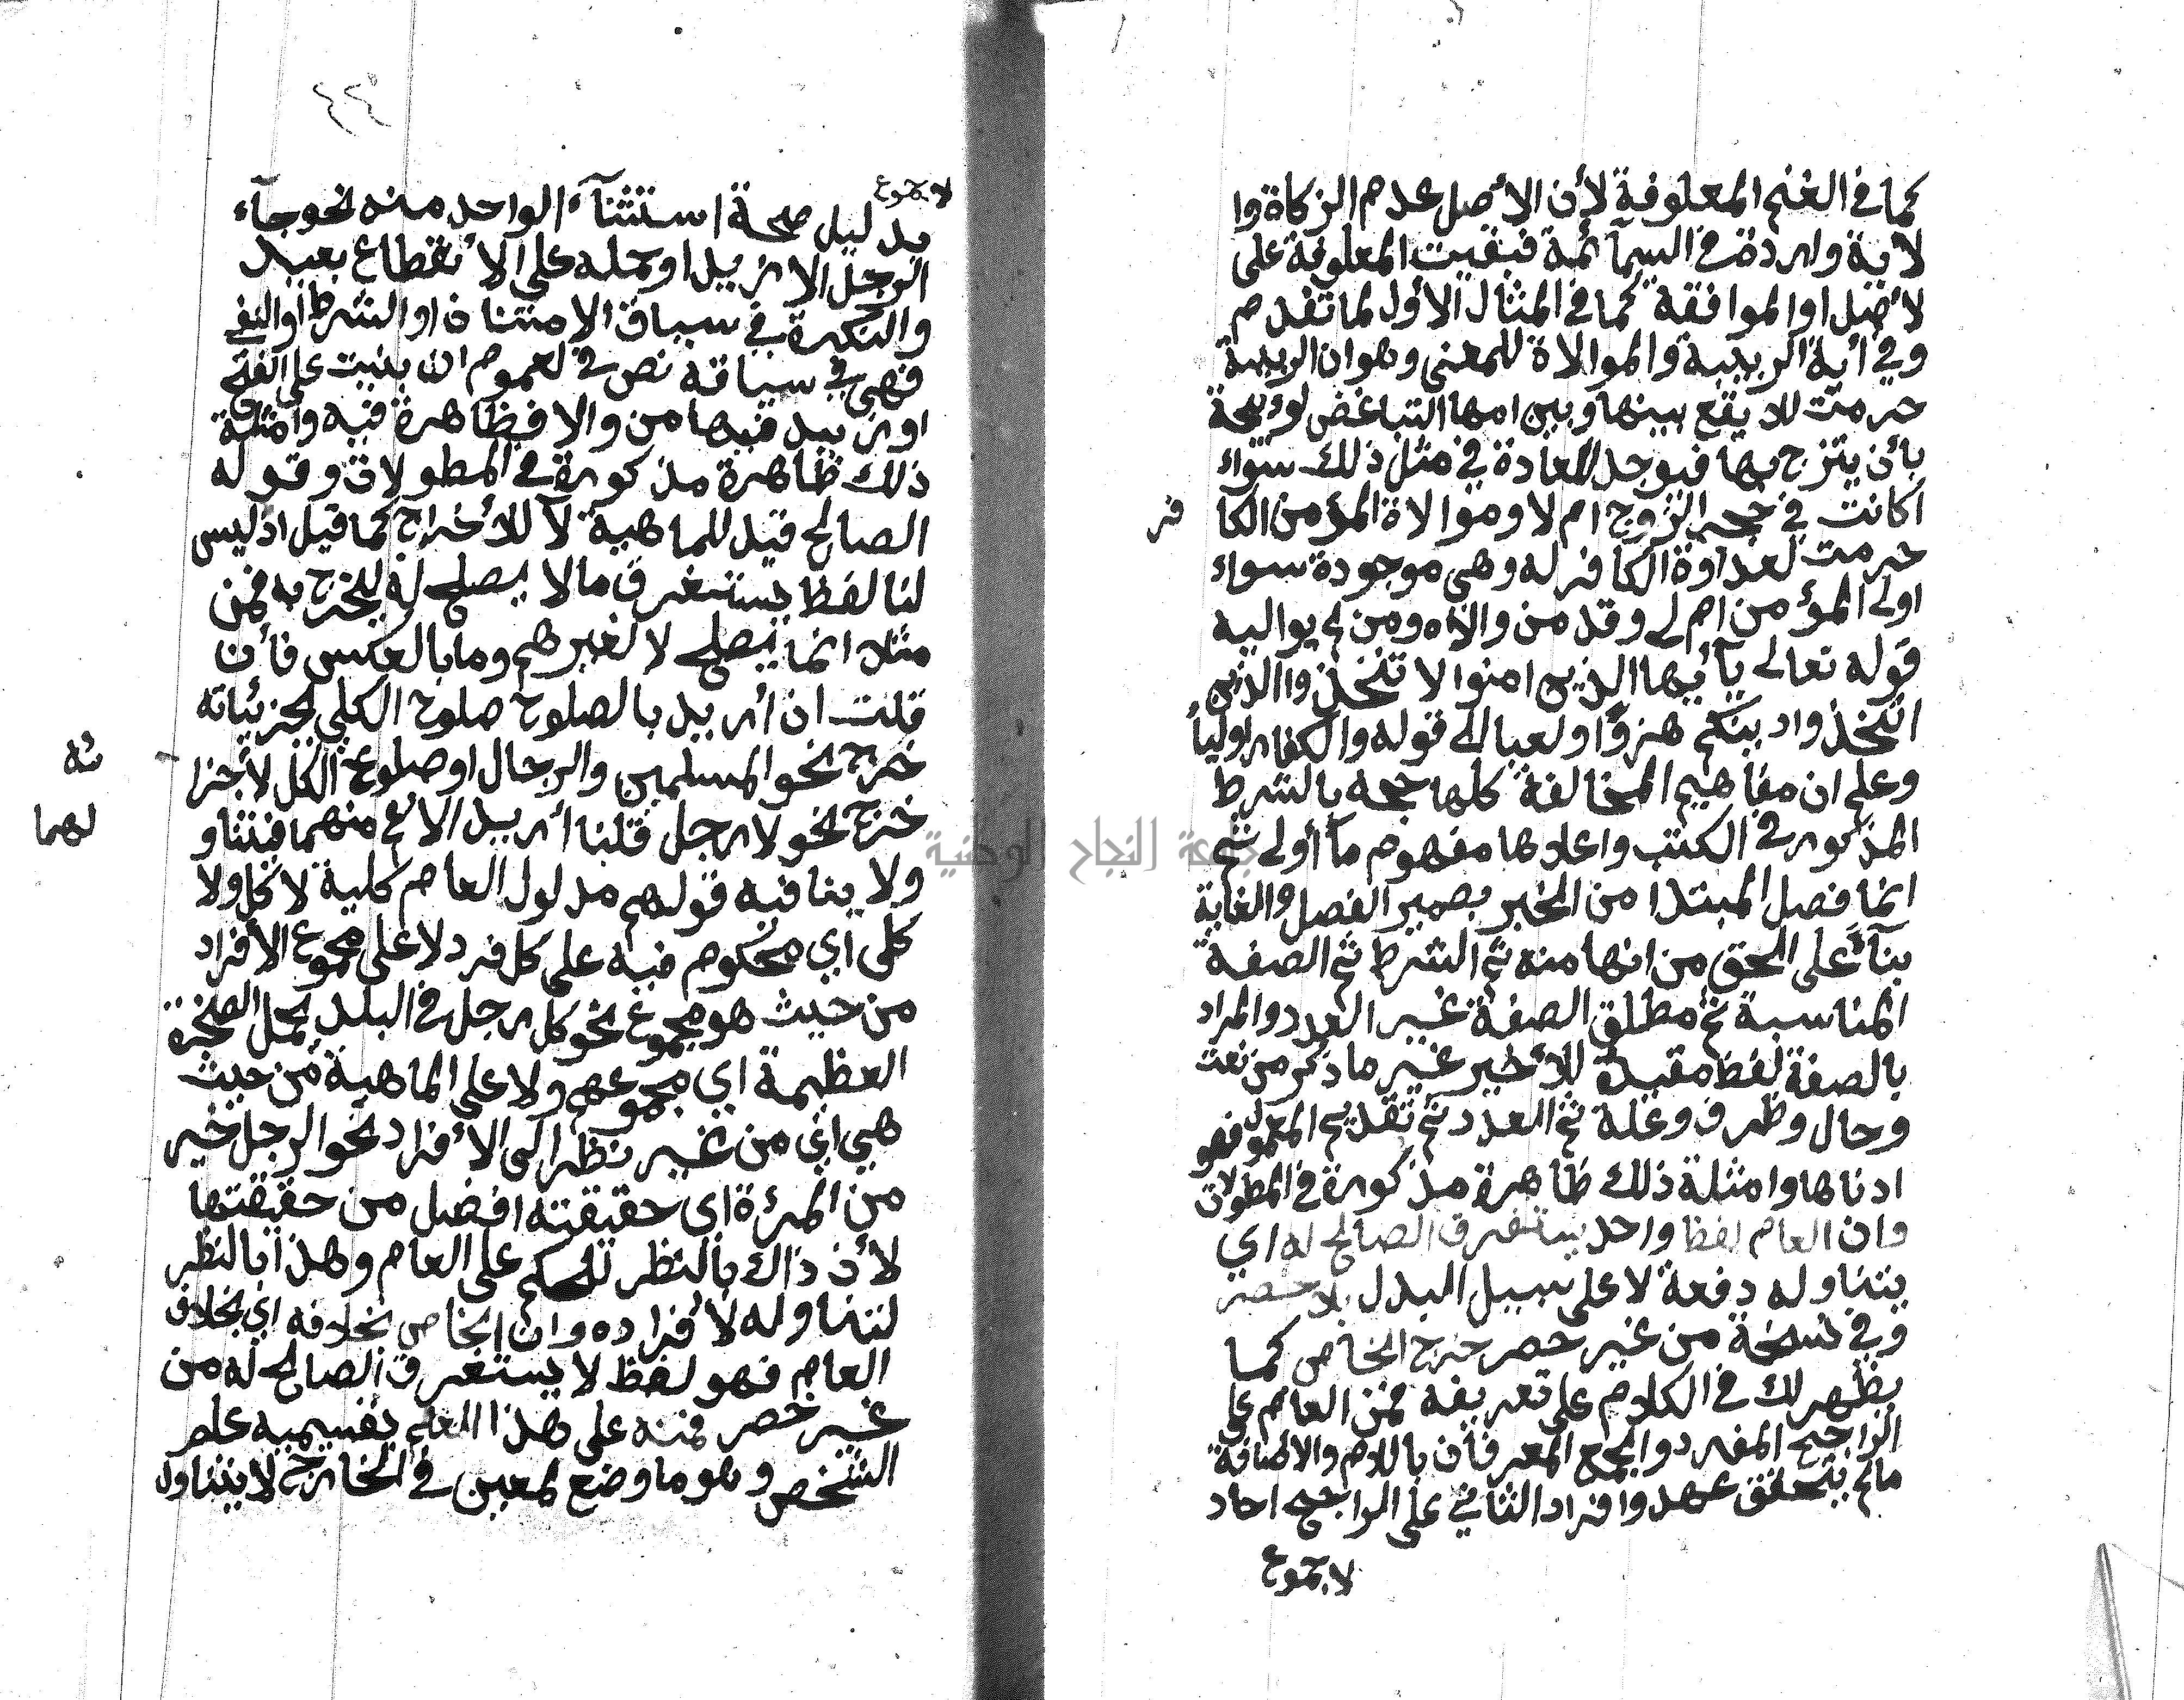 كما في الغنم المعلوفة لأن الأصل عدم الزكاة وا
لاية واردة في السآئمة فبقيت المعلوفة على
لأصل او الموافقة كما في المثال الأول لما تقدم
وفي أية الربيبة والموالاة للمعنى وهو ان الربيبة
حرمت للا يقع بينها وبين امها التباغض لو ابيحة
بأن يتزج بها فيوجد للعادة في مثل ذلك سواء
أكانت في حجر الزوج ام لا وموالاة المؤمن الكا فر
حرمت لعداوة الكافر له وهي موجودة سواء
اولى المؤمن ام لى وقد من والاه ومن لم يواليه
قوله تعالى يآأيها الذين امنوا لا تتخذوا الذين
اتخذوا دينكم هزؤا ولعبا الى قوله والكفار اوليأ
وعلم ان مفاهيم المخالفة كلها حجه بالشرط
المذكور في الكتب واعلاها مفهوم ما أولى ثم
انما فصل المبتدا من الخبر بصمير الفصل والغاية
بنآءً على الحق من انها منه ثم الشرط ثم الصفة
المناسبة ثم مطلق الصفة غير العدد والمراد
بالصفة لفظ مقيد للأخير غير ما ذكر من نعت
وحال وظرف وعلة ثم العدد ثم تقديم المعمول فهو
ادناها وامثلة ذلك ظاهرة مذكورة في المطولات
وان العام لفظ واحد يستغرق الصالح له اي
يتناوله دفعة لا على سبيل البدل بلا حصر
وفي نسخة من غير حصر خرج الخاص كما
يظهر لك في الكلام على تعريفه فمن العام على
الراجح المفرد والجمع المعرفان باللام والاضافة
مالم يتحقق عهد وافراد الثاني على الراجح احاد
لا جموع
٤٢
لا جموع
بدليل صحة استثنآء الواحد منه نحو جآء
الرجل الا زيدا وحمله على الأنقطاع بعيد
والنكرة في سياق الامتنان او الشرط او النفي
فهي في سياقه نص في لعموم ان بنيت على الفتح
او زييد فيها من والا فظاهرة فيه وامثلة
ذلك ظاهرة مذكورة في المطولات وقوله
الصالح قيد للماهية لآ للأخراج كما قيل اذ ليس
لنا لفظ يستغرق مالا يصلح له ليخرج به فمن
مثلا انما يصلح لا لغيرهم وما بالعكس فأن
قلت ان أريد بالصلوح صلوح الكلي لجزيئاته
خرج نحو المسلمين والرجال او صلوح الكل لأجزا ئه
خرج نحو لا رجل قلنا أريد الاعم منهما فيتناو لهما
ولا ينافيه قولهم مدلول العام كلية لا كل ولا
كلى اي محكوم فيه على كل فرد لا على مجموع الأفراد
من حيث هو مجموع نحو كل رجل في البلد يحمل الصخرة
العظيمة اي مجموعهم ولا على الماهية من حيث
هي اي من غير نظر الى الأفراد نحو الرجل خير
من المرئة اى حقيقته افضل من حقيقتها
لأن ذاك بالنظر للحكم على العام وهذا بالنظر
لتناوله لأفراده وان الخاص بخلافه اي بخلاف
العام فهو لفظ لا يستغرق الصالح له من
غير حصر فمنه على هذا العلم بقسيميه علم
الشخص وهو ما وضع لمعين في الخارج لا يتناول
جامعة النجاح الوطنية